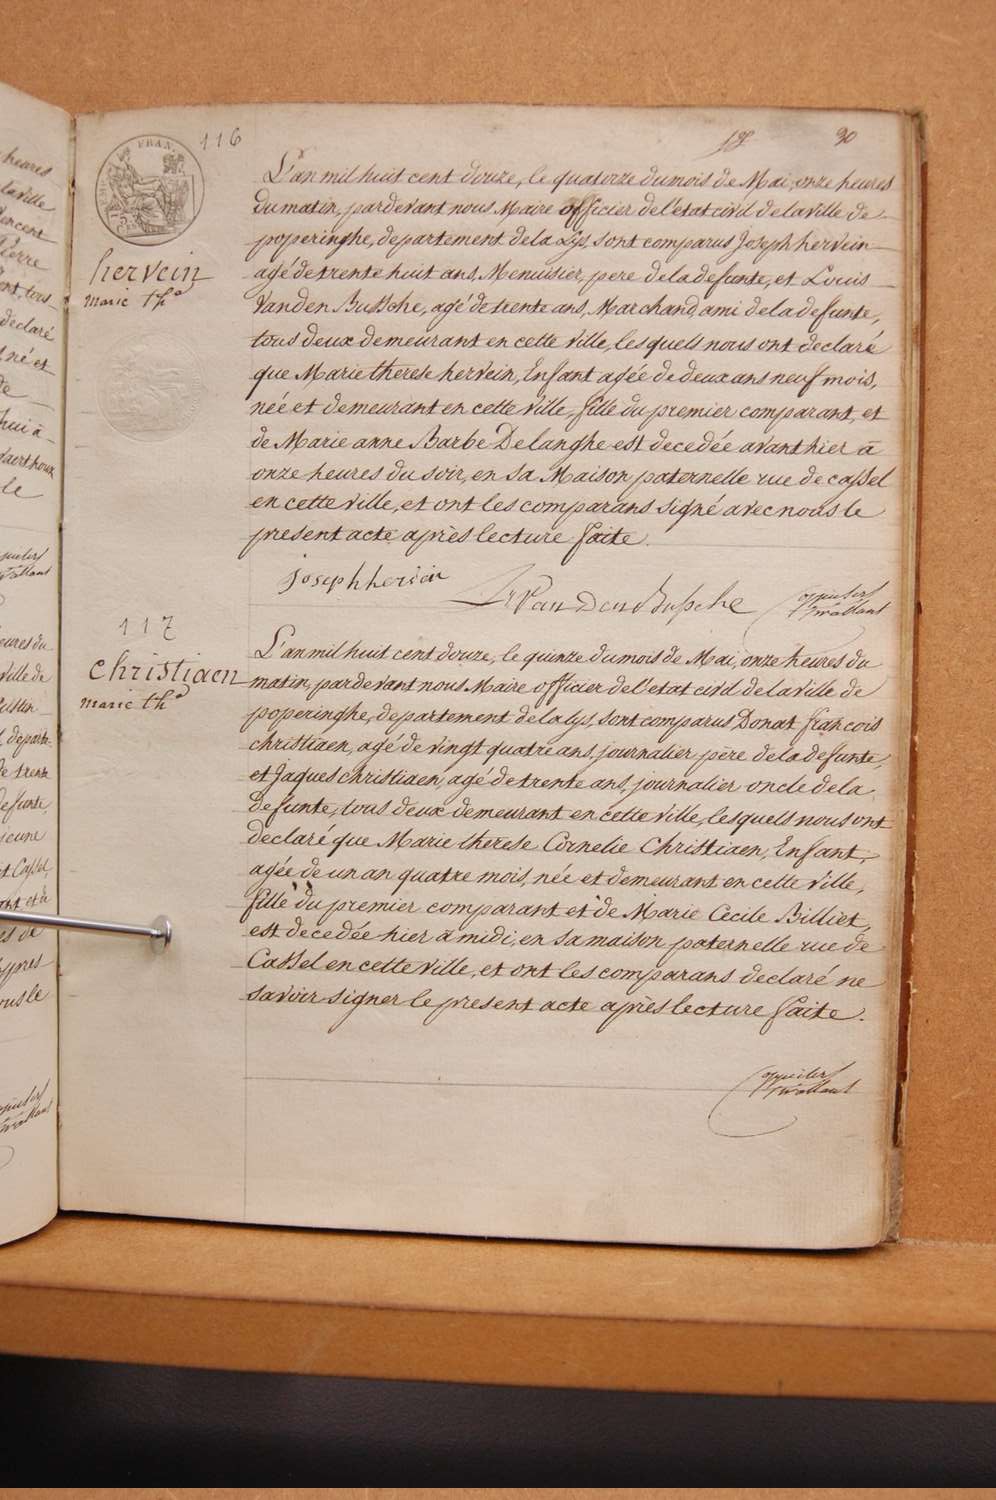 116
30
hervein
marie th.e
L'an mil huit cent douze, le quatorze du mois de Mai, onze heures
du matin, pardevant nous Maire officier de l'etat civil de la ville de
poperinghe, departement de la Lys, sont comparus Joseph hervein
agé de trente huit ans, Menuisier, pere de la defunte, et Louis
Vanden Bussche, agé de trente ans, Marchand, ami de la defunte,
tous deux demeurant en cette ville, lesquels nous ont declaré
que Marie therese hervein, Enfant agée de deux ans neuf mois,
née et demeurant en cette ville, fille du premier comparant, et
de Marie anne Barbe Delanghe est decedée avant hier à
onze heures du soir, en sa Maison paternelle rue de cassel
en cette ville, et ont les comparans signé avec nous le
present acte après lecture faite.
Joseph hervein
L Van Den Bussche
117
christiaen
marie th.e
L'an mil huit cent douze, le quinze du mois de Mai, onze heures du
matin, pardevant nous Maire officier de l'etat civil de la ville de
poperinghe, departement de la lys, sont comparus Donat françois
christiaen, agé de vingt quatre ans, journalier, père de la defunte,
et Jaques christiaen, agé de trente ans, journalier oncle de la
defunte, tous deux demeurant en cette ville, lesquels nous ont
declaré que Marie therese Cornelie Christiaen, Enfant,
agée de un an quatre mois, née et demeurant en cette ville,
fille du premier comparant et de Marie Cecile Billiet,
est decedée hier à midi, en sa maison paternelle rue de
Cassel en cette ville, et ont les comparans declaré ne
savoir signer le present acte après lecture faite.